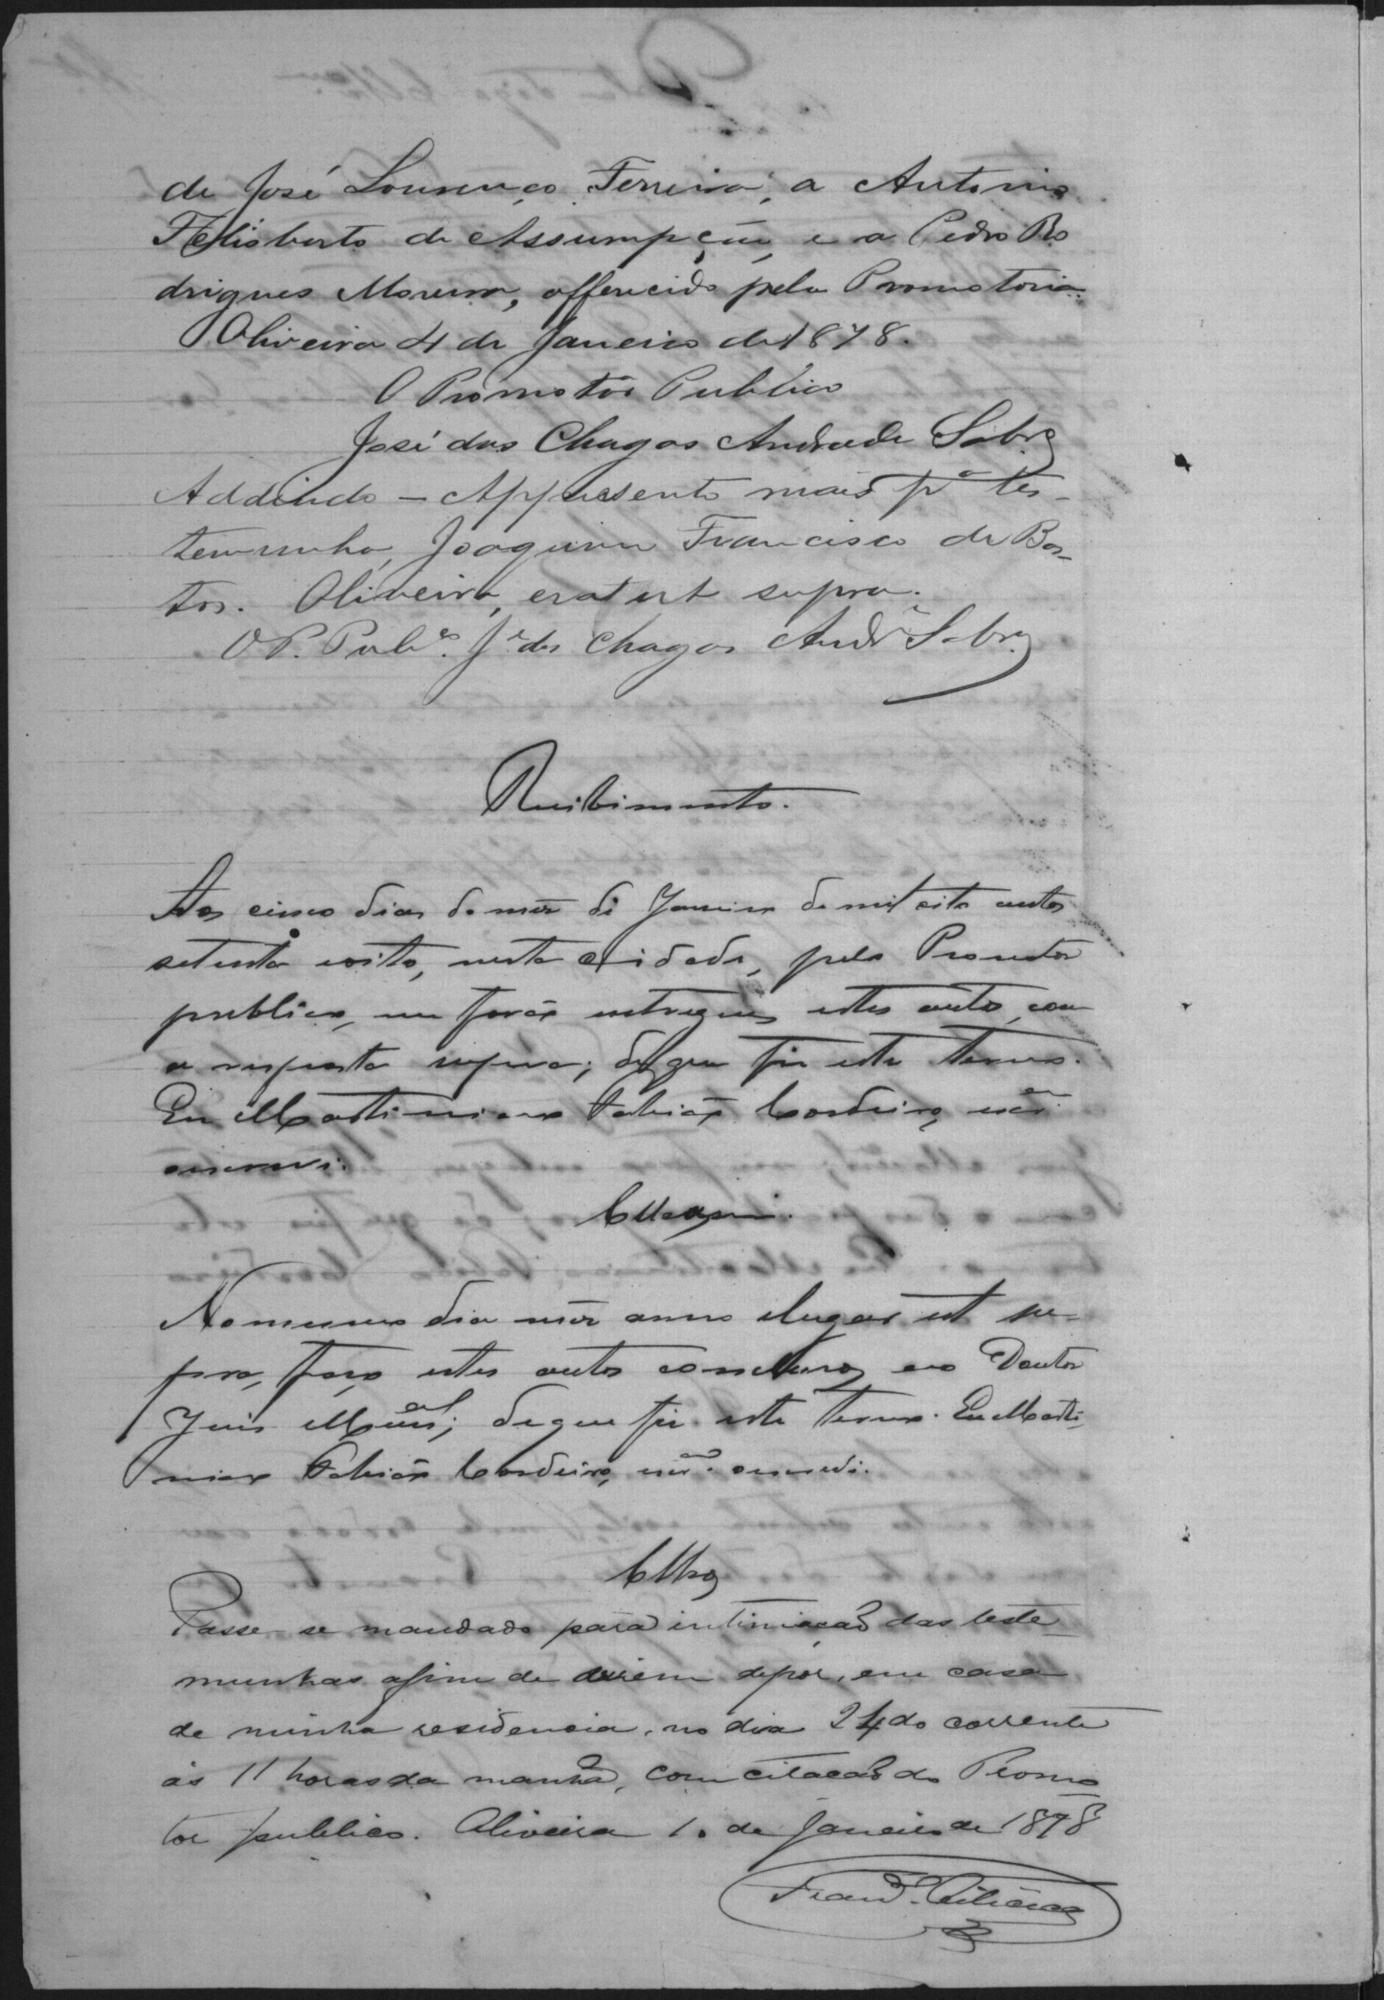 de José Lourenço Ferreira, a Antonio
Felisberto de Assumpção, e a Pedro Ro
drigues Moreira, offerecido pela Promotoria.
Oliveira 4 de Janeiro de 1878.
O Promotor Publico
José das Chagas Andrade Sobrº
Addindo — Appresento mais pª tes-
temunha, Joaquim Francisco de Bas-
tos. Oliveira, era ut supra.
O P. Pubcº. Jé das Chagas Andrº Sobrº
Recibimento.
Aos cinco dias do mês de Janeiro de mil oito centos
setenta e oito, nesta cidade, pelo Promotor
publico, me forão entregues estes autos com
a resposta supra; do que fiz este termo.
Eu Martiniano Fabião Cordeiro, escrm
o escrevi.
Cllªsam.
No mesmo dia mês anno e lugar ut su-
pra, faço estes autos conclusos ao Doutor
Juis Mual; de que fiz este termo. Eu Marti
niano Fabião Cordeiro, escrm. o escrevi.
Cllsos
Passe-se mandado para intimação das teste
munhas afim de virem depôr, em casa
de minha residencia, no dia 24 do corrente
ás 11 horas da manhã, com citação do Promo
tor publico. Oliveira 1. de Janeiro de 1878